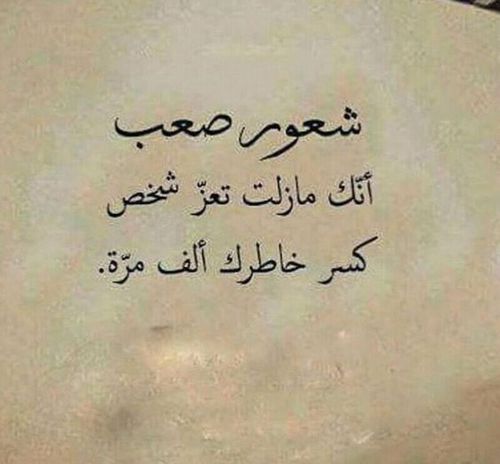 شعور صعب
أنّك مازلت تعزّ شخص
كسر خاطرك ألف مرّة.